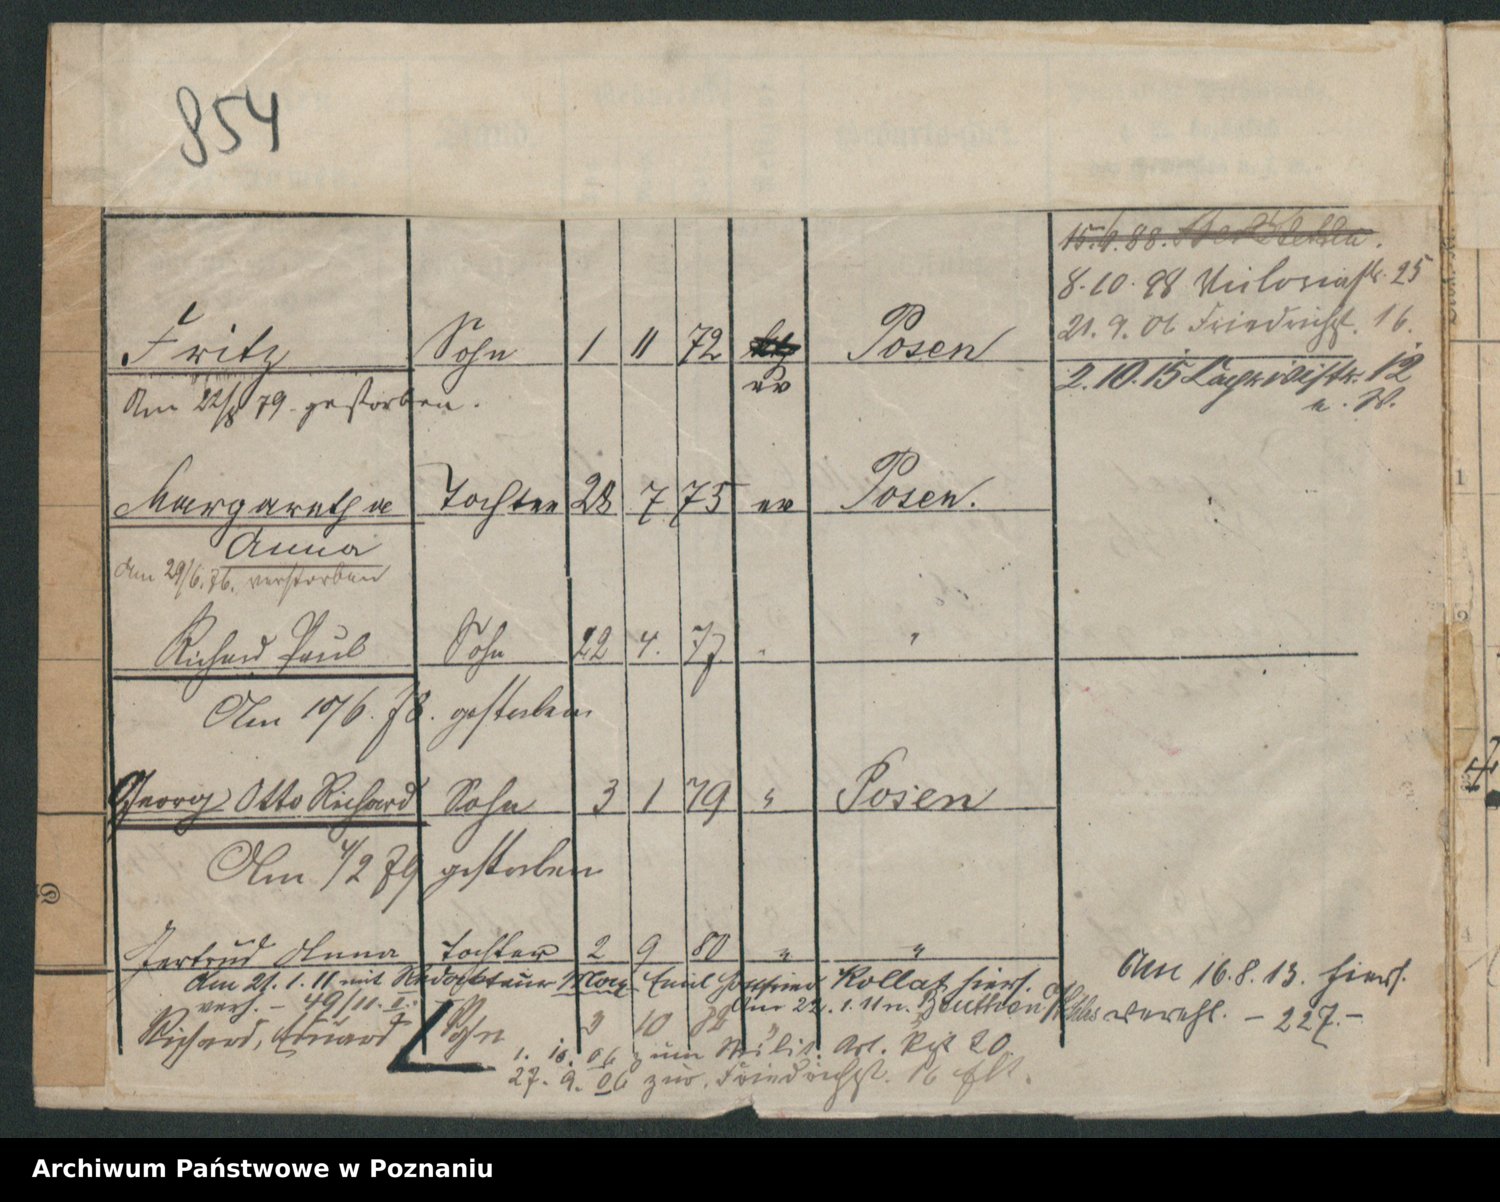 854
15.4.88.
8.10.98 Victoriastr. 25
21.9.06 Friedrichst. 16.
Fritz Sohn 1 11 72 ev Posen
2.10.15 12
a. W.
Am 22/8 79. gestorben.
Margaretha Tochter 28 7 75 ev Posen.
Anna
Am 29/6.76. verstorben
Richard Paul Sohn 22 4. 77 " "
Am 10/6. 78. gestorben
Georg Otto Richard Sohn 3 1 79 " Posen
Am 4/2 79 gestorben
Gertrud Anna Tochter 2 9 80 " "
Am 21.1.11 mit Redakteur Max Emil Gottfried Kollat hiers.
verh. - 49/11.II.- Am 22.1.11 n. Beuthen O/Schles
Am 16.8.13. hiers.
verehl. - 227.-
Richard, Eduard Sohn 3 10 82 " "
1. 10. 06 zum Milit. Art. Rgt 20
27. 9. 06 zur. Friedrichst. 16
Archiwum Państwowe w Poznaniu